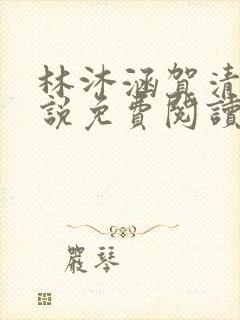 林沐涵賀清
說免費閱讀
嚴琴